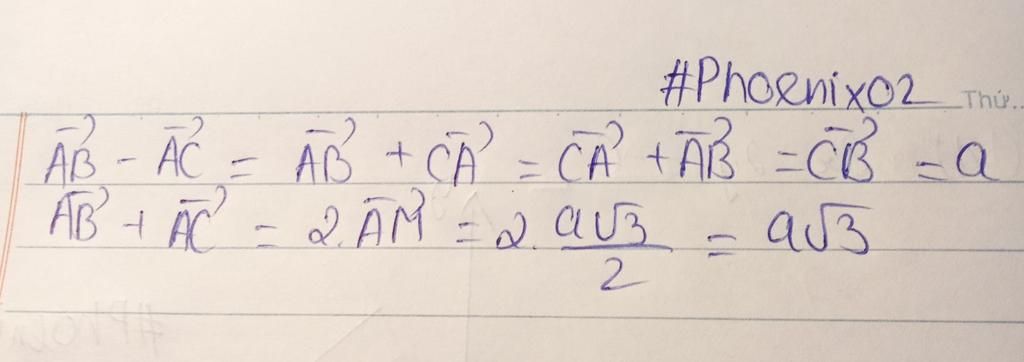 #Phoenix02
Thứ..
$\overrightarrow{AB} - \overrightarrow{AC} = \overrightarrow{AB} + \overrightarrow{CA} = \overrightarrow{CA} + \overrightarrow{AB} = \overrightarrow{CB} = a$
$\overrightarrow{AB} + \overrightarrow{AC} = 2.\overrightarrow{AM} = 2.\frac{a\sqrt{3}}{2} = a\sqrt{3}$